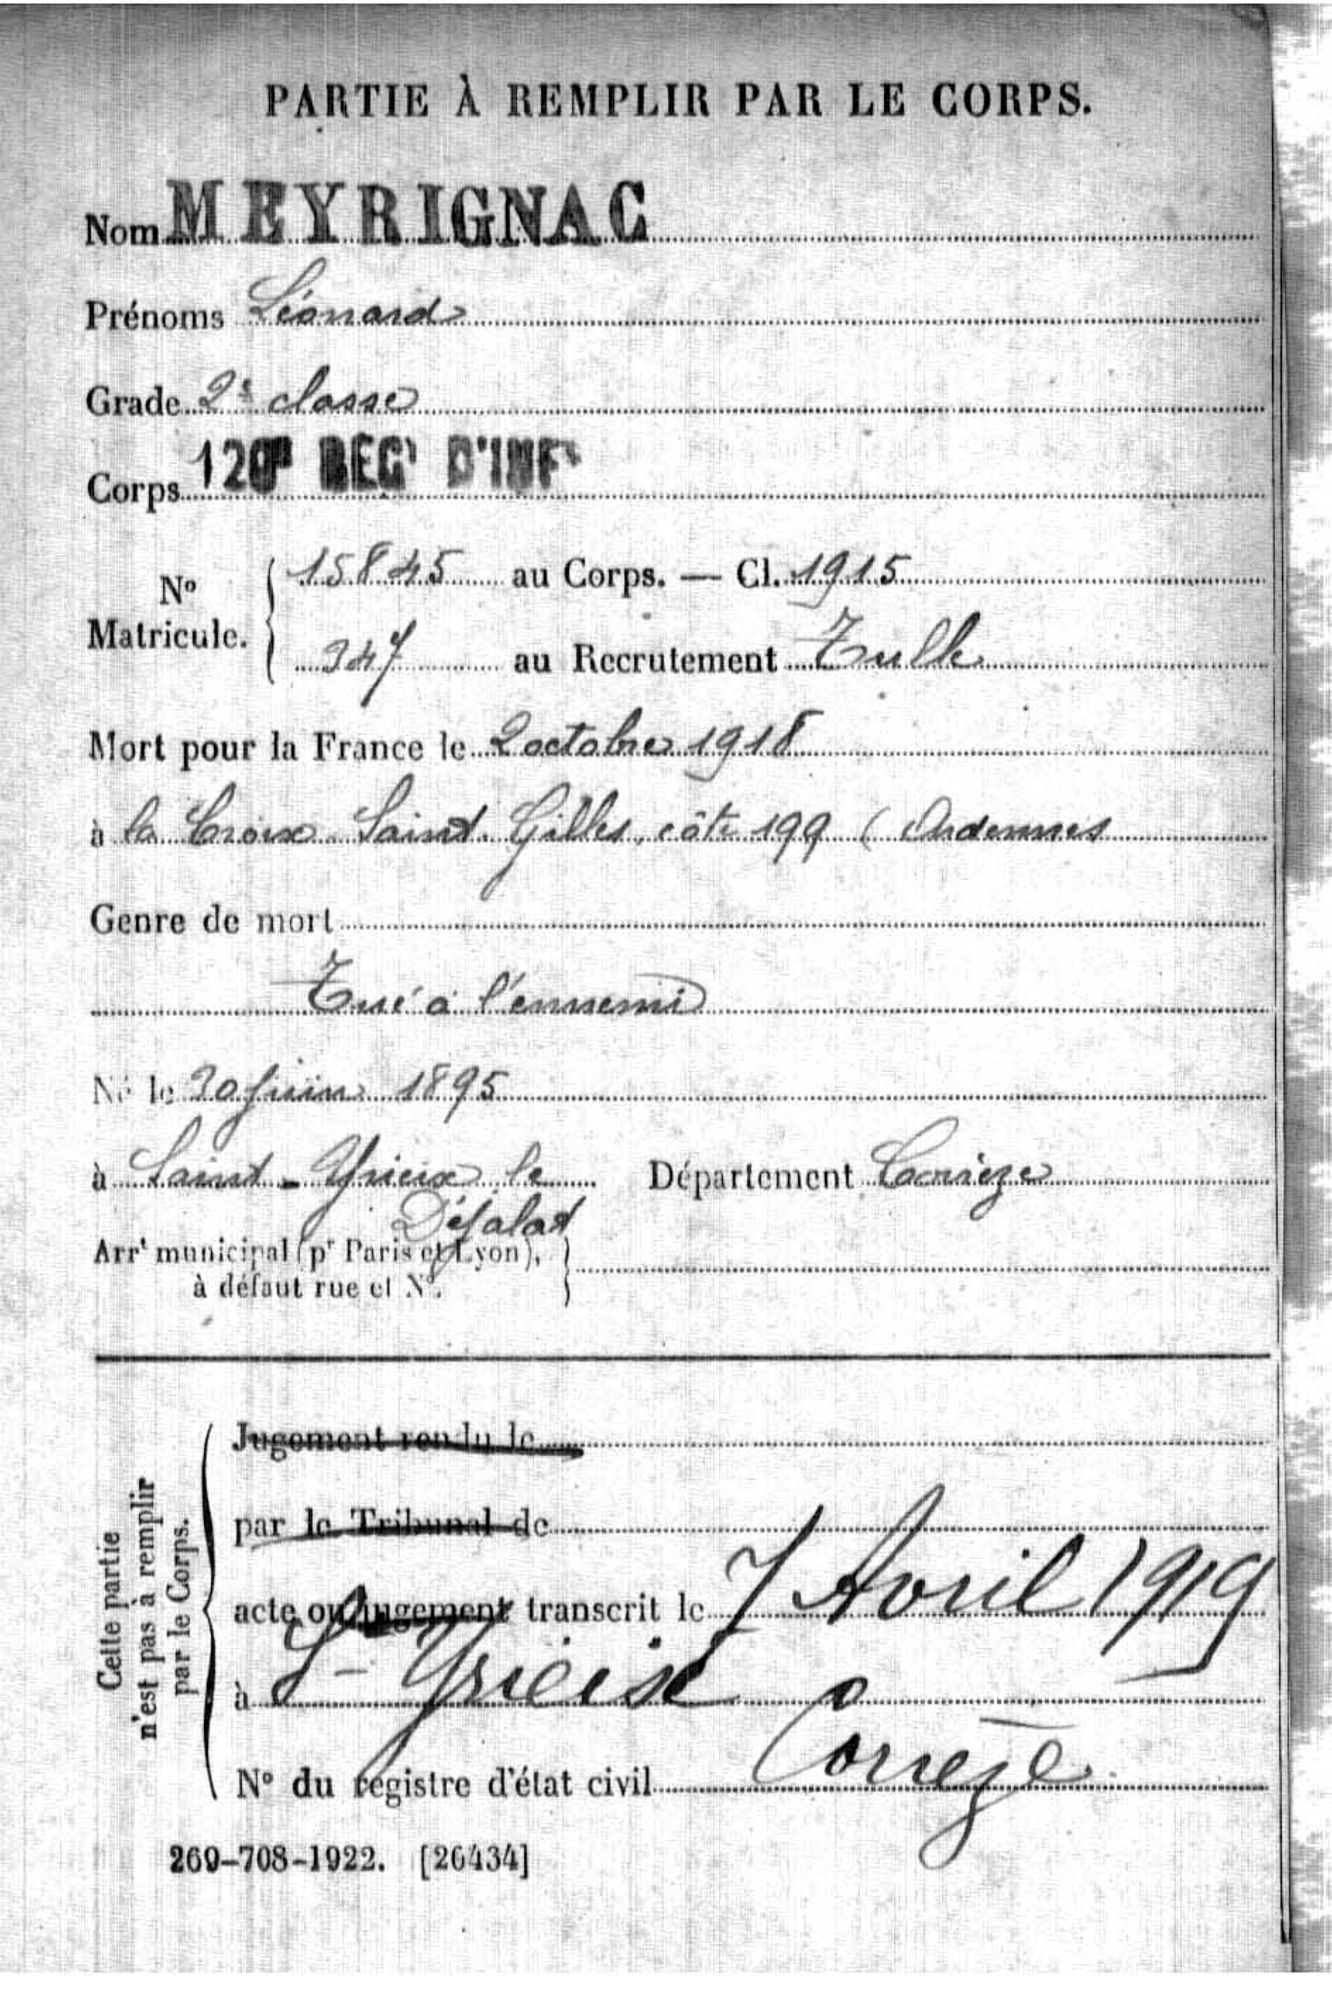 PARTIE À REMPLIR PAR LE CORPS.
Nom MEYRIGNAC
Prénoms Léonard
Grade 2e classe
Corps 120e RÉGt D'INFie
No Matricule. { 15845 au Corps. — Cl. 1915
347 au Recrutement Tulle
Mort pour la France le 2 octobre 1918
à la Croix Saint Gilles, côte 199 (Ardennes
Genre de mort
Tué à l'ennemi
Né le 30 juin 1895
à Saint-Yrieix le Département Corrèze
Déjalat
Arrt municipal (pr Paris et Lyon),
à défaut rue et No.
Cette partie
n'est pas à remplir
par le Corps.
Jugement rendu le
par le Tribunal de
acte ou jugement transcrit le 7 Avril 1919
à St Yrieix
Corrèze
No du registre d'état civil
269-708-1922. [26434]